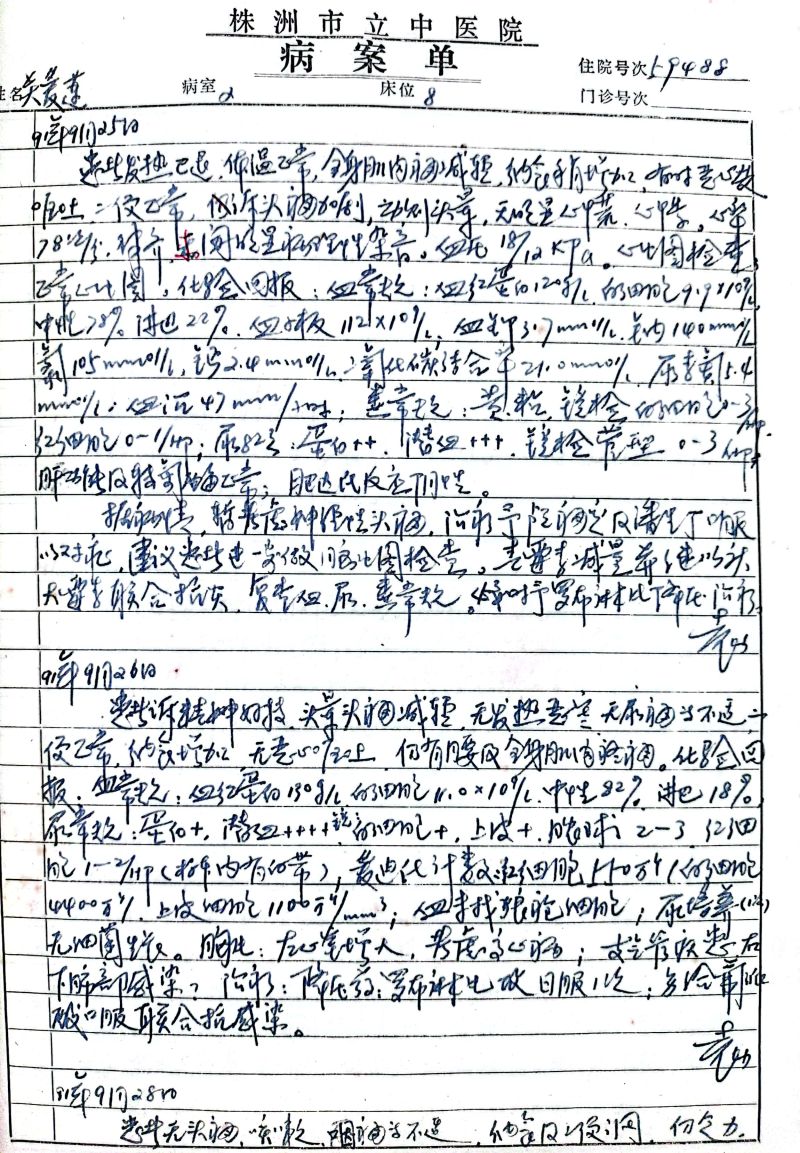 株洲市立中医院
病案单
住院号次 59488
姓名 病室 2 床位 8 门诊号次
91年9月25日
患者发热已退,体温正常,全身肌肉痛减轻,纳食稍有增加,有时恶心欲
呕吐,二便正常,仍诉头痛加剧,动则头晕,无明显心慌、心
78次/分,律齐,未闻明显病理性杂音。血压18/12KPa。心电图检查:
正常心电图。化验回报:血常规:血红蛋白120g/L,白细胞9.9×10⁹/L,
中性78%,淋巴22%,血小板112×10⁹/L;血钾3.7mmol/L,钠140mmol/L
氯105mmol/L,钙2.4mmol/L,二氧化碳结合率21.0mmol/L,尿素氮5.4
mmol/L;血沉47mm/小时;粪常规:黄,软,镜检白细胞0-3/HP
红细胞0-1/HP;尿8项:蛋白++,潜血+++,镜检管型0-3/HP,
肝功能及 正常;肥达氏反应阴性。
据病情,暂考虑神经性头痛,治疗予 痛定及潘生丁口服
以对症,建议患者进一步做脑电图检查。 素减量并继以
霉素联合抗炎,复查血、尿、粪常规。 时予罗布麻片降压治疗。
91年9月26日
患者诉精神好转,头晕头痛减轻,无发热恶寒,无尿痛等不适,二
便正常,纳食增加,无恶心呕吐,仍有腰及全身肌肉疼痛。化验回
报:血常规:血红蛋白130g/L,白细胞11.0×10⁹/L,中性82%,淋巴18%。
尿常规:蛋白+,潜血++++,镜检白细胞+,上皮+,脓球2-3,红细
胞1-2/HP( 内有白带);爱迪氏计数:红细胞550万 白细胞
4400万 上皮细胞1100万 ;血未找狼疮细胞;尿培养(1次)
无细菌生长。胸片:左心室增大,考虑高心病;支气管疾患 右
下肺部感染?治疗:降压药:罗布麻片 日服1次;
酸口服联合抗感染。
91年9月28日
患者无头痛、咳嗽、咽痛等不适,纳食及二便调,仍乏力